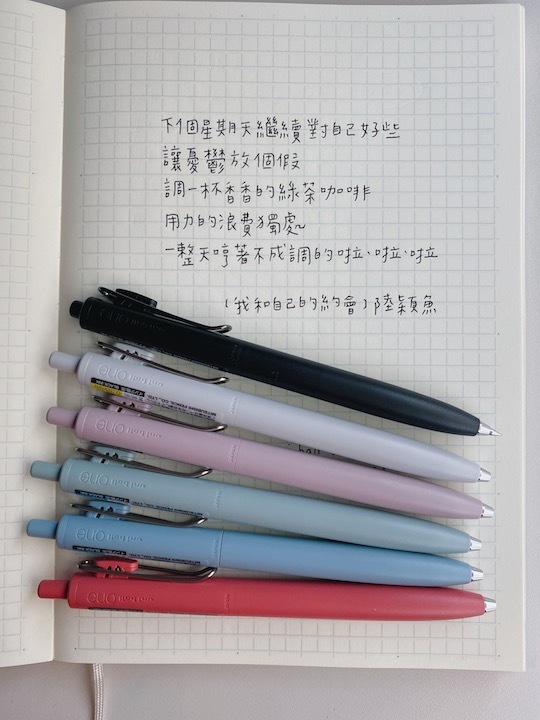 下個星期天繼續對自己好些
讓憂鬱放個假
調一杯香香的綠茶咖啡
用力的浪費獨處
一整天哼著不成調的啦、啦、啦
〈我和自己的約會〉陸穎魚
uni-ball one
uni-ball one
uni-ball one
uni-ball one
uni-ball one
uni-ball one